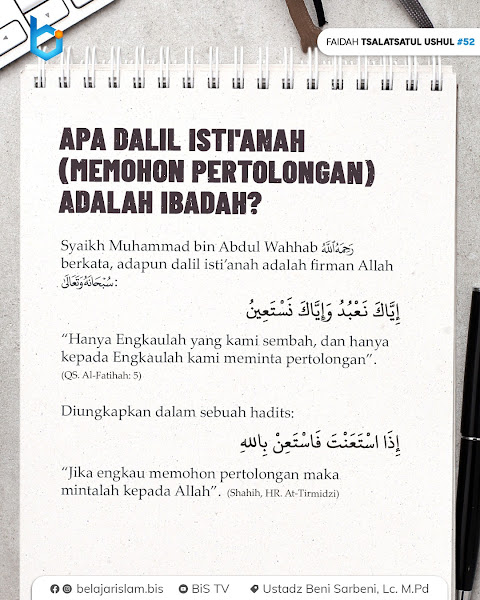 FAIDAH TSALATSATUL USHUL #52
APA DALIL ISTI'ANAH
(MEMOHON PERTOLONGAN)
ADALAH IBADAH?
Syaikh Muhammad bin Abdul Wahhab رَحِمَهُ اللَّهُ
berkata, adapun dalil isti'anah adalah firman Allah
سُبْحَانَهُ وَتَعَالَى:
إِيَّاكَ نَعْبُدُ وَإِيَّاكَ نَسْتَعِينُ
“Hanya Engkaulah yang kami sembah, dan hanya
kepada Engkaulah kami meminta pertolongan”.
(QS. Al-Fatihah: 5)
Diungkapkan dalam sebuah hadits:
إِذَا اسْتَعَنْتَ فَاسْتَعِنْ بِاللهِ
“Jika engkau memohon pertolongan maka
mintalah kepada Allah”. (Shahih, HR. At-Tirmidzi)
belajarislam.bis BiS TV Ustadz Beni Sarbeni, Lc. M.Pd